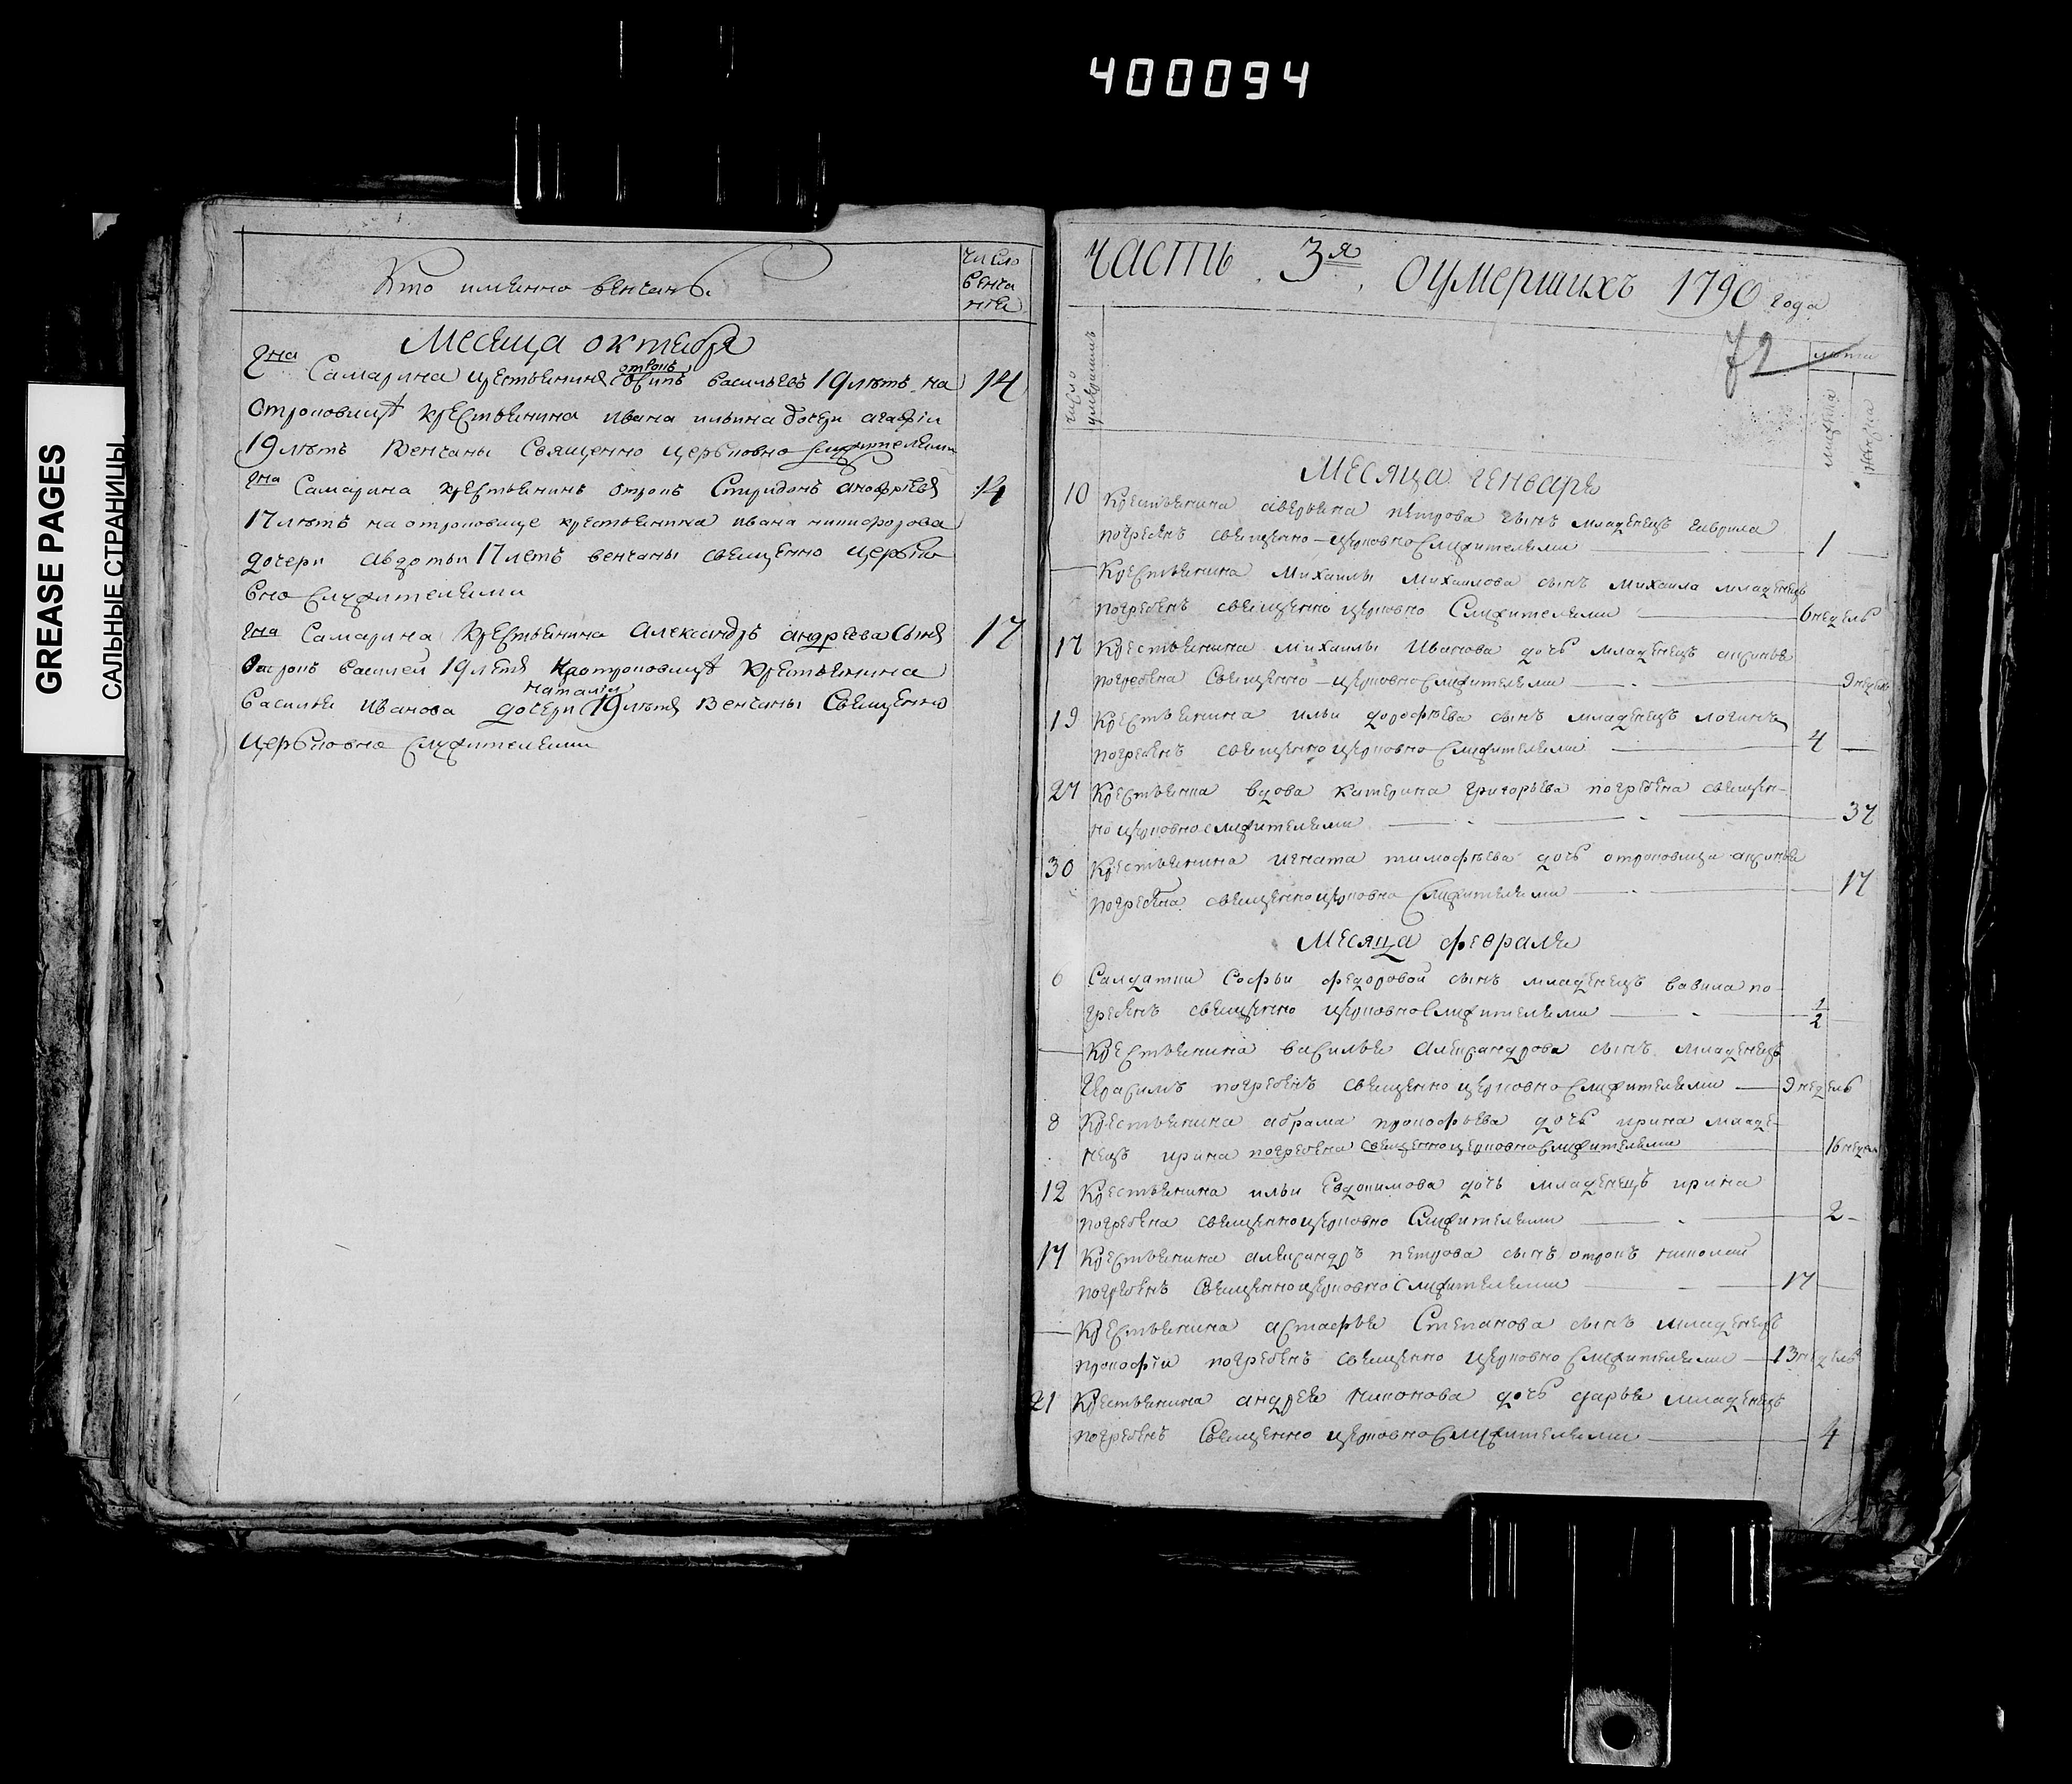 400094
GREASE PAGES
САЛЬНЫЕ СТРАНИЦЫ
Кто именно венчанъ.
число
венча
нія
Месяца октября
Гна Самарина крестьянинъ отрокъ Осипъ васильевъ 19 лѣтъ на
отроковицѣ крестьянина ивана ильина дочери агафіи
19 лѣтъ венчаны священно церковно служителями
14
Гна Самарина крестьянинъ отрокъ Спиридонъ анофріевъ
17 лѣтъ на отроковице крестьянина ивана никифорова
дочери авдотьи 17 летъ венчаны свещенно церько
вно служителями
14
Гна Самарина крестьянина Александръ андреева сынъ
отрокъ василей 19 летъ на отроковицѣ крестьянина
василья иванова дочери наталіи 19 летъ венчаны свещенно
церьковно служителями
17
часть 3я оумершихъ 1790 года
72
число умершихъ
лѣта
мужеска
женска
Месяца генваря
10 крестьянина аверьяна петрова сынъ младенецъ гаврила
погребенъ свещенно-церковно служителями 1
крестьянина Михаилы Михаилова сынъ михаила младенецъ
погребенъ свещенно церковно служителями 6 недель
17 крестьянина михаилы иванова дочь младенецъ аксинья
погребена свещенно-церковно служителями 9 недель
19 крестьянина ильи дорофѣева сынъ младенецъ логинъ
погребенъ свещенно церковно служителями 4
27 крестьянка вдова катерина григорьева погребена свещен-
но церковно служителями 37
30 крестьянина игната тимофѣева дочь отроковица аксинья
погребена свещенно церковно служителями 17
Месяца февраля
6 Салдатки Софьи федоровой сынъ младенецъ вавила по-
гребенъ свещенно церковно служителями 1/2
крестьянина василья александрова сынъ младенецъ
Герасимъ погребенъ свещенно церковно служителями 9 недель
8 крестьянина абрама прокофьева дочь ирина младе-
нецъ ирина погребена свещенно церковно служителями 16 недель
12 крестьянина ильи Евдокимова дочь младенецъ ирина
погребена свещенно церковно служителями 2
17 крестьянина александръ петрова сынъ отрокъ николай
погребенъ свещенно церковно служителями 17
крестьянина астафья Степанова сынъ младенецъ
прокофіи погребенъ свещенно церковно служителями 13 недель
21 крестьянина андрея никонова дочь дарья младенецъ
погребенъ свещенно церковно служителями 4